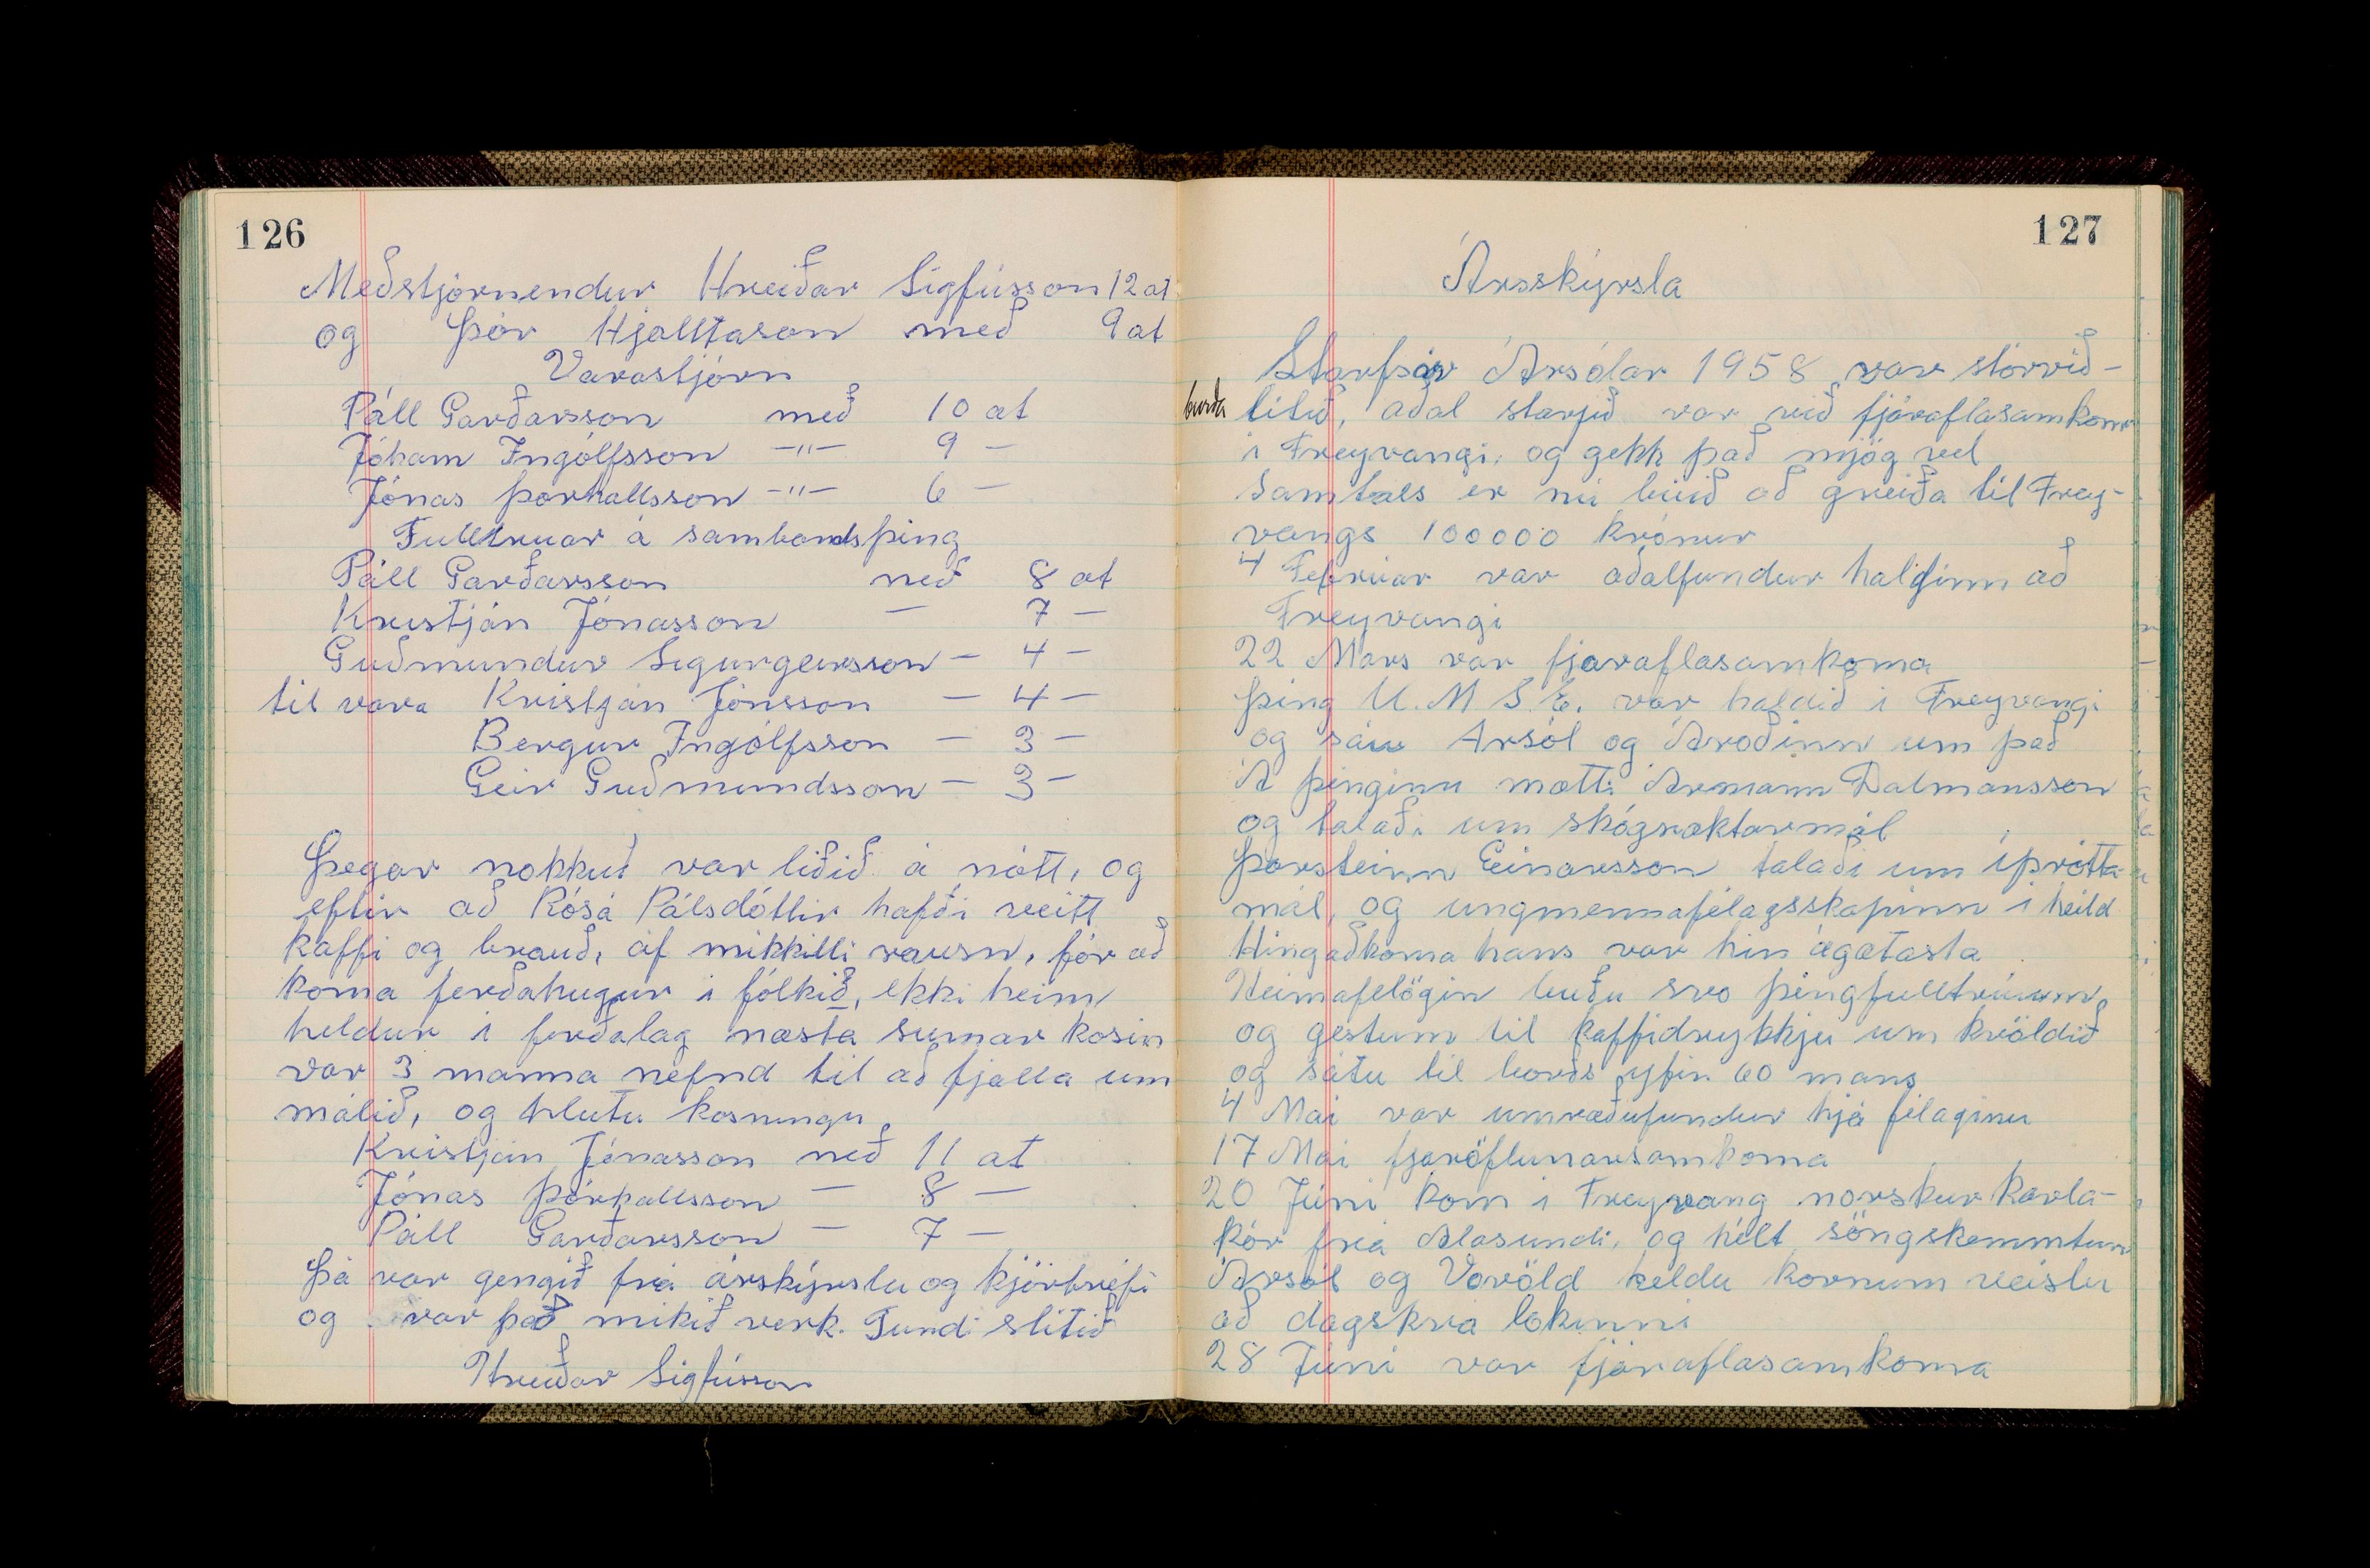 126
Meðstjórnendur Hreiðar Sigfússon 12 at
og Þór Hjalltason með 9 at
Varastjórn
Páll Garðarsson með 10 at
Jóhann Ingólfsson -"- 9 -
Jónas Þorhallsson -"- 6 -
Fulltruar á sambandsþing
Páll Garðarsson með 8 at
Kristján Jónasson - 7 -
Guðmundur Sigurgeirsson - 4 -
til vara Kristján Jónsson - 4 -
Bergur Ingólfsson - 3 -
Geir Guðmundsson - 3 -
Þegar nokkuð var liðið á nótt, og
eftir að Rósa Pálsdóttir hafði veitt
kaffi og brauð, af mikkilli rausn, fór að
koma ferðahugur i fólkið, ekki heim
heldur i ferðalag næsta sumar kosin
var 3 manna nefnd til að fjalla um
málið, og hlutu kosningu
Kristján Jónasson með 11 at
Jónas Þórhallsson - 8 -
Páll Garðarsson - 7 -
Þá var gengið frá árskýrslu og kjörbréfi
og var það mikið verk. Fundi slitið
Hreiðar Sigfússon
127
Ársskýrsla
Starfsár Ársólar 1958 var störvið-
burða lítið, aðal starfið var við fjáraflasamkomur
i Freyvangi, og gekk það mjög vel
Samtals er nú búið að greiða til Frey-
vangs 100000 krónur
4 Febrúar var aðalfundur haldinn að
Freyvangi
22 Mars var fjaraflasamkoma
Þing U.M S.E. var haldið i Freyvangi
og sáu Arsól og Árroðinn um það
Á þinginu mætti Ármann Dalmansson
og talaði um skógræktarmál
Þorsteinn Einarsson talaði um íþrótta-
mál, og ungmennafélagsskapinn i heild
Hingaðkoma hans var hin ágætasta
Heimafelögin buðu svo þingfulltrúum
og gestum til kaffidrykkju um kvöldið
og sátu til borðs yfir 60 mans
4 Mai var umræðufundur hjá félaginu
17 Mai fjaröflunarsamkoma
20 Júni kom i Freyvang norskur karla-
kór frá Alasundi, og hélt söngskemmtun
Ársól og Voröld heldu kórnum veislu
að dagskrá lokinni
28 Júni var fjáraflasamkoma